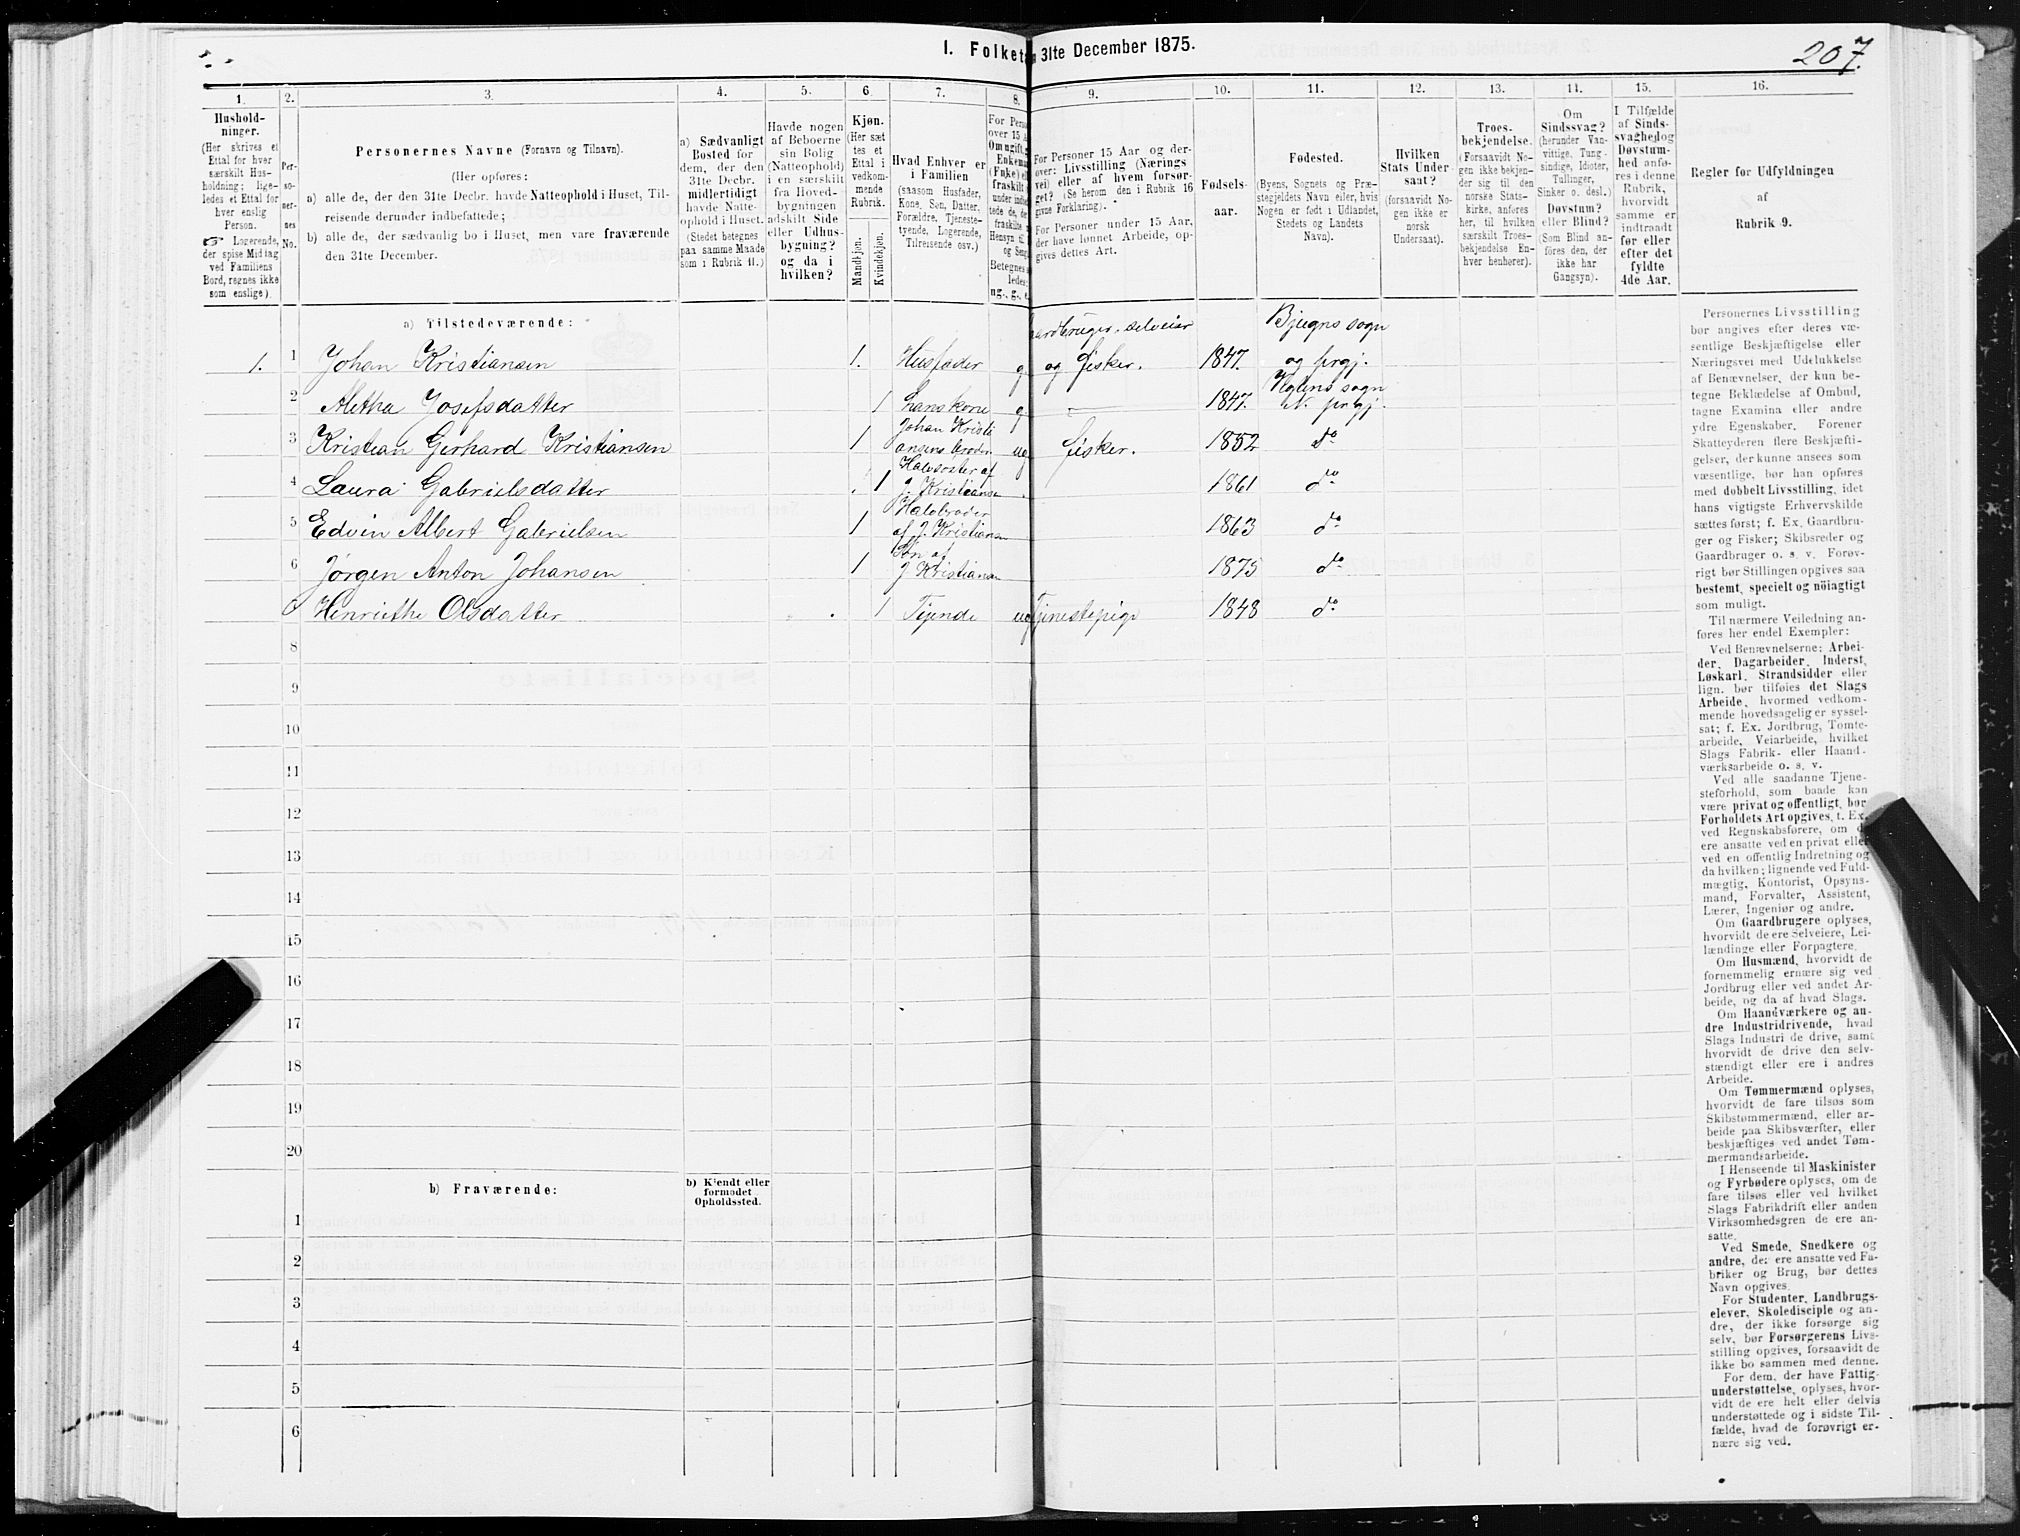 I. Folketæ 31te December 1875.
207.
1.
2.
3.
4.
5.
6.
7.
8.
9.
10.
11.
12.
13.
14.
15.
16.
Hushold-
ninger.
(Her skrives et
Ettal for hver
særskilt Hus-
holdning; lige-
ledes et Ettal for
hver enslig
Person.
☞ Logerende,
der spise Middag
ved Familiens
Bord, regnes ikke
som enslige).
Per-
so-
ner-
nes
No.
Personernes Navne (Fornavn og Tilnavn).
(Her opføres:
a) alle de, der den 31te Decbr. havde Natteophold i Huset, Til-
reisende derunder indbefattede;
b) alle de, der sædvanlig bo i Huset, men vare fraværende
den 31te December.
a) Sædvanligt
Bosted for
dem, der den
31te Decbr.
midlertidigt
havde Natte-
ophold i Huset.
(Stedet betegnes
paa samme Maade
som i Rubrik 11.)
Havde nogen
af Beboerne
sin Bolig
(Natteophold)
i en særskilt
fra Hoved-
bygningen
adskilt Side
eller Udhus-
bygning?
og da i
hvilken?
Kjøn.
(Her sæt
tes et
Ettal i
vedkom-
mende
Rubrik.
Mandkjøn.
Kvindekjøn.
Hvad Enhver er
i Familien
(saasom Husfader,
Kone, Søn, Datter,
Forældre, Tjeneste-
tyende, Logerende,
Tilreisende osv.)
For Personer 15 Aar og der-
over: Livsstilling (Nærings
vei) eller af hvem forsør-
get? (Se herom den i Rubrik 16
givne Forklaring).
For Personer under 15 Aar,
der have lønnet Arbeide, op-
gives dettes Art.
Fødsels-
aar.
Fødested.
(Byens, Sognets og Præ-
stegjeldets Navn eller, hvis
Nogen er født i Udlandet,
Stedets og Landets
Navn).
Hvilken
Stats Under
saat?
(forsaavidt No-
gen ikke er
norsk
Undersaat).
Troes-
bekjendelse.
(Forsaavidt No-
gen ikke bekjen-
der sig til den
norske Stats-
kirke, anføres
her, til hvilken
særskilt Troes-
bekjendelse En-
hver henhører).
Om
Sindssvag?
(herunder Van-
vittige, Tung-
sindige, Idioter,
Tullinger,
Sinker o. desl.)
Døvstum?
eller Blind?
(Som Blind an-
føres den, der
ikke har
Gangsyn).
I Tilfælde
af Sinds-
svaghed og
Døvstum-
hed anfø-
res i denne
Rubrik,
hvorvidt
samme er
indtraadt
før eller
efter det
fyldte
4de Aar.
Regler for Udfyldningen
af
Rubrik 9.
a) Tilstedeværende:
1. 1 Johan Kristiansen 1. Husfader g aardbruger, selveier og fisker. 1847. Bjugns sogn og prgj.
2 Aletha Josefsdatter 1 hans kone g 1847. sogn N. prgj.
3 Kristian Gerhard Kristiansen 1 Johan Kristiansens broder ug fisker. 1852 do
4 Laura Gabrielsdatter 1 Halvsøster af J. Kristiansen 1861 do
5 Edvin Albert Gabrielsen 1 Halvbroder af J. Kristiansen 1863 do
6 Jørgen Anton Johansen 1 Søn af J Kristiansen 1875 do
Henriethe Olsdatter 1 Tjende ug Tjenestepige 1848 do
8
9
10
11
12
13
14
15
16
17
18
19
20
b) Fraværende:
b) Kjendt eller
formodet
Opholdssted.
1
2
3
4
5
6
Personernes Livsstilling
bør angives efter deres væ-
sentlige Beskjæftigelse eller
Næringsvei med Udelukkelse
af Benævnelser, der kun be-
tegne Beklædelse af Ombud,
tagne Examina eller andre
ydre Egenskaber. Forener
Skatteyderen flere Beskjæfti-
gelser, der kunne ansees som
væsentlige, bør han opføres
med dobbelt Livsstilling, idet
hans vigtigste Erhvervskilde
sættes først; f. Ex. Gaardbru-
ger og Fisker; Skibsreder og
Gaardbruger o. s. v. Forøv-
rigt bør Stillingen opgives saa
bestemt, specielt og nöiagtigt
som muligt.
Til nærmere Veiledning an-
føres her endel Exempler:
Ved Benævnelserne: Arbei-
der, Dagarbeider, Inderst,
Løskarl, Strandsidder eller
lign. bør tilføies det Slags
Arbeide, hvormed vedkom-
mende hovedsagelig er syssel-
sat; f. Ex. Jordbrug, Tomte-
arbeide, Veiarbeide, hvilket
Slags Fabrik- eller Haand-
værksarbeide o. s. v.
Ved alle saadanne Tjene-
steforhold, som baade kan
være privat og offentligt, bør
Forholdets Art opgives, t. Ex.
ved Regnskabsførere, om de
ere ansatte ved en privat eller
ved en offentlig Indretning og
da hvilken; lignende ved Fuld-
mægtig, Kontorist, Opsyns-
mand, Forvalter, Assistent,
Lærer, Ingeniør og andre.
Om Gaardbrugere oplyses,
hvorvidt de ere Selveiere, Lei-
lændinge eller Forpagtere.
Om Husmænd, hvorvidt de
fornemmelig ernære sig ved
Jordbrug eller ved andet Ar-
beide, og da af hvad Slags.
Om Haandværkere og an-
dre Industridrivende, hvad
Slags Industri de drive, samt
hvorvidt de drive den selv-
stændigt eller ere i andres
Arbeide.
Om Tømmermænd oplyses,
hvorvidt de fare tilsøs som
Skibstømmermænd, eller ar-
beide paa Skibsværfter, eller
beskjæftiges ved andet Tøm-
mermandsarbeide.
I Henseende til Maskinister
og Fyrbødere oplyses, om de
fare tilsøs eller ved hvilket
Slags Fabrikdrift eller anden
Virksomhedsgren de ere an-
satte.
Ved Smede, Snedkere og
andre, der ere ansatte ved Fa-
briker og Brug, bør dettes
Navn opgives.
For Studenter, Landbrugs-
elever, Skoledisciple og an-
dre, der ikke forsørge sig
selv, bør Forsørgerens Livs-
stilling opgives, forsaavidt de
ikke bo sammen med denne.
For dem, der have Fattig-
understøttelse, oplyses, hvor-
vidt de ere helt eller delvis
understøttede og i sidste Til-
fælde, hvad de forøvrigt er-
nære sig ved.